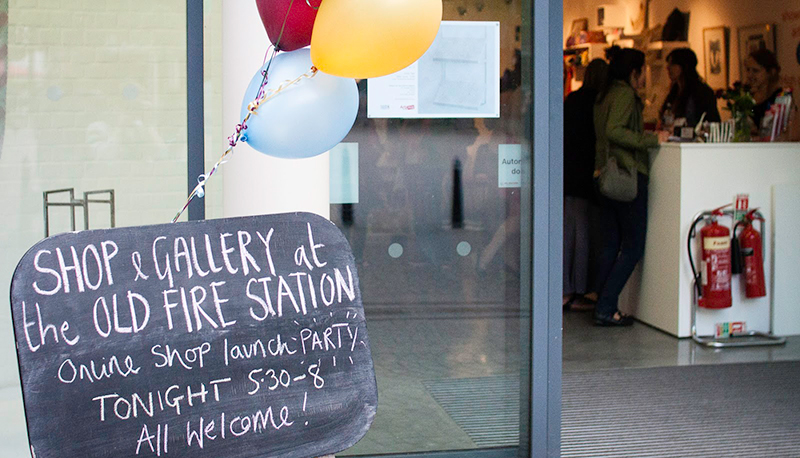 SHOP & GALLERY at
the OLD FIRE STATION
Online Shop launch PARTY
TONIGHT 5.30-8
All Welcome!